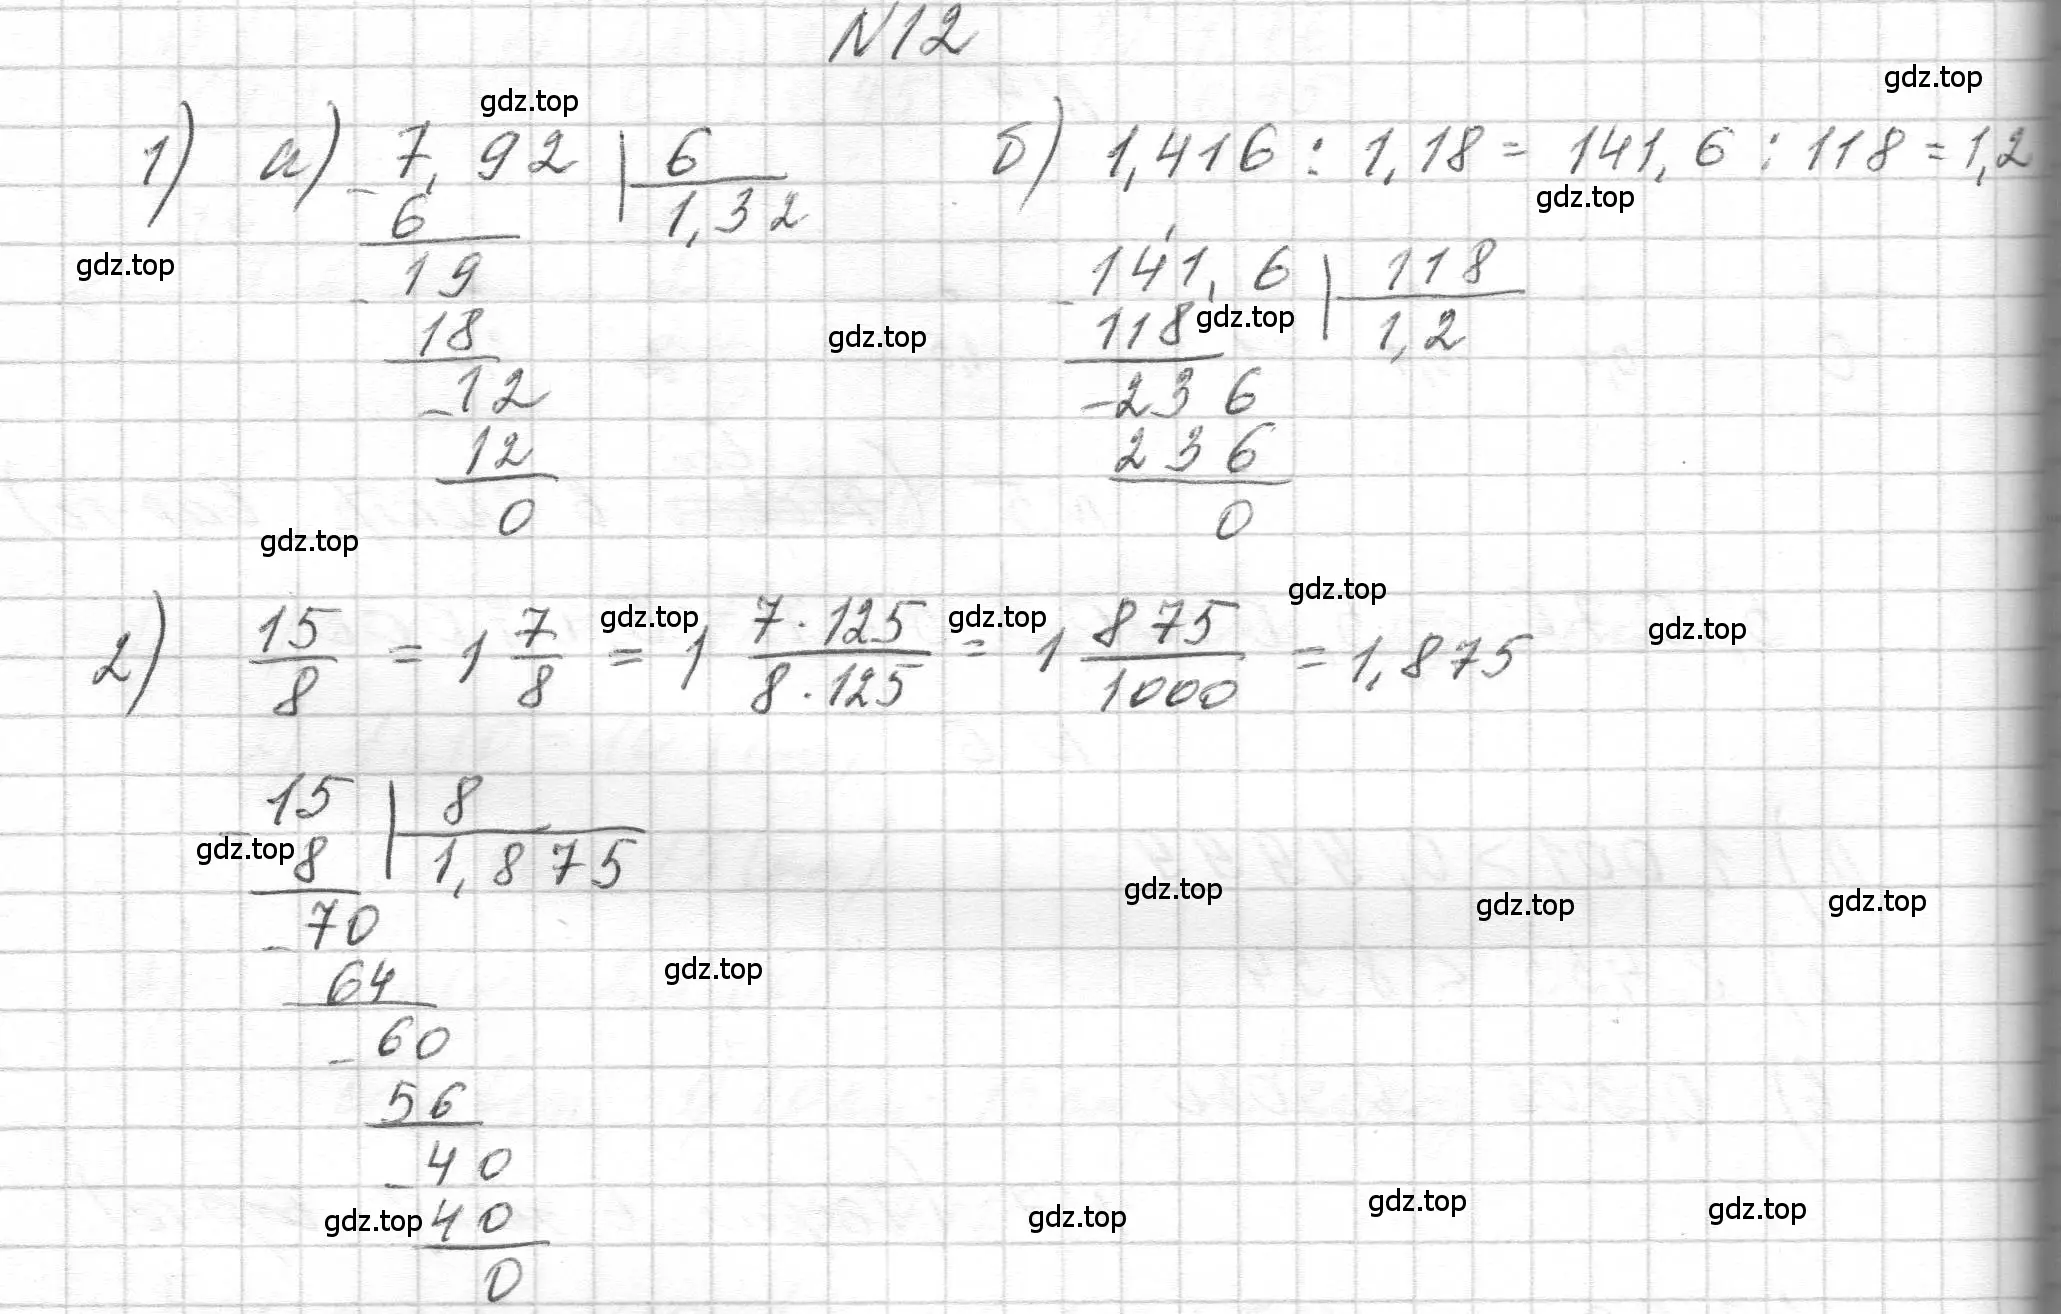 N12
gdz.top
gdz.top
1) а) 7,92 | 6
б) 1,416 : 1,18 = 141,6 : 118 = 1,2
gdz.top
- 6 1,32
gdz.top
19
- 141,6 | 118
- 18
118 1,2
gdz.top
gdz.top
- 12
- 236
12
236
0
0
gdz.top
gdz.top
2) 15/8 = 1 7/8 = 1 7·125/8·125 = 1 875/1000 = 1,875
gdz.top
gdz.top
gdz.top
15 | 8
gdz.top
8 1,875
gdz.top
gdz.top
gdz.top
- 70
64
gdz.top
- 60
56
- 40
gdz.top
40
gdz.top
gdz.top
gdz.top
0